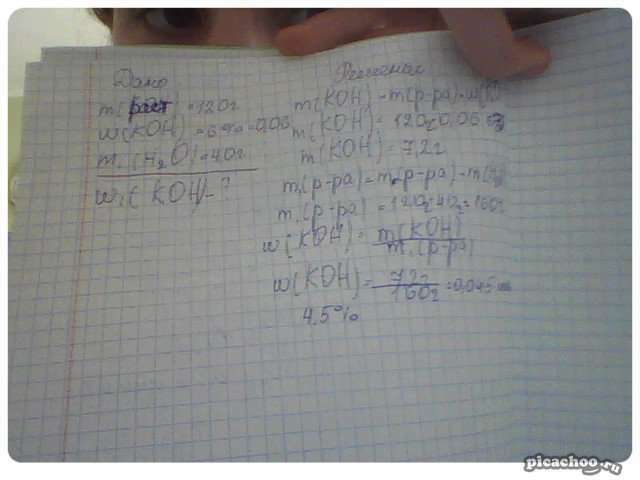 Дано
m(раст) = 120г
w(KOH) = 6% = 0,06
m.(H₂O) = 40г
w.(KOH) - ?
Решение
m(KOH) = m(р-ра)
m(KOH) = 120г 0,06
m(KOH) = 7,2г
m.(р-ра) = m(р-ра)
m.(р-ра) = 120г 40г = 160г
w(KOH) = m(KOH)
m.(р-ра)
w(KOH) = 7,2г = 0,045
160г
4,5%
picachoo.ru